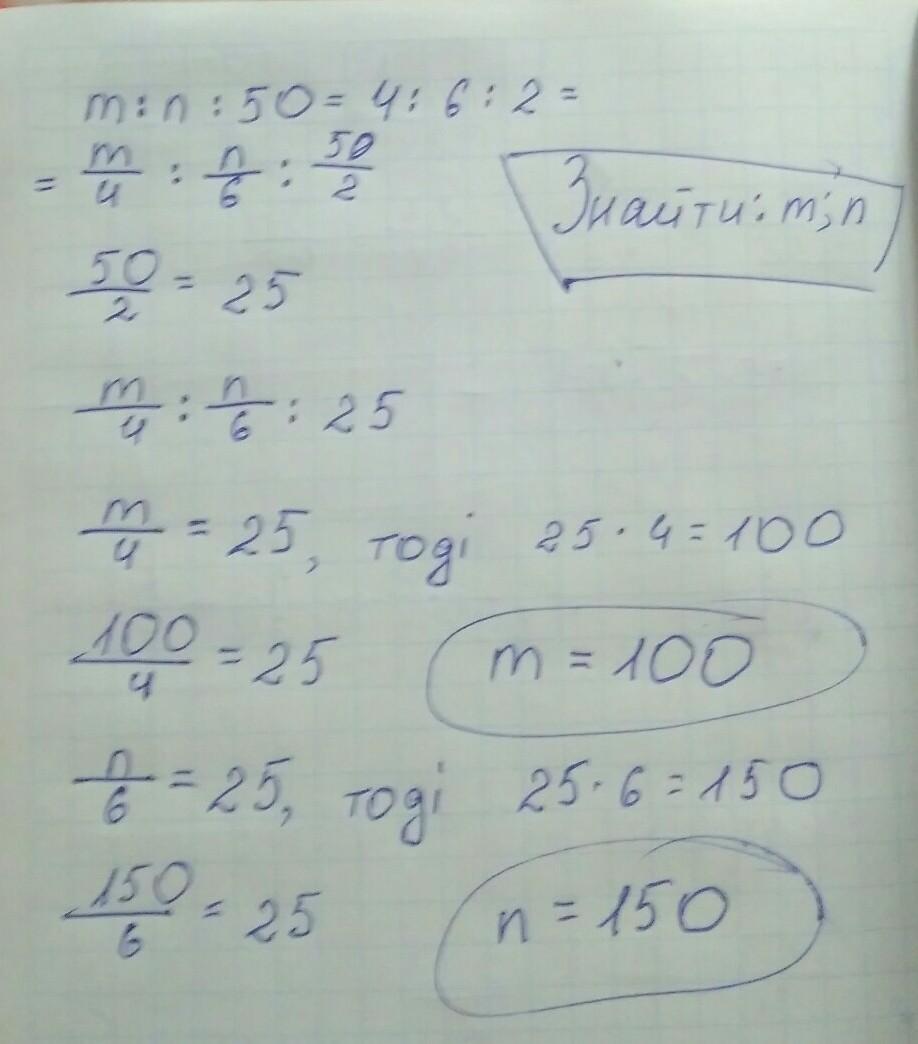 m : n : 50 = 4 : 6 : 2 =
= m/4 : n/6 : 50/2
Знайти: m; n
50/2 = 25
m/4 : n/6 : 25
m/4 = 25, тоді 25 · 4 = 100
100/4 = 25 m = 100
n/6 = 25, тоді 25 · 6 = 150
150/6 = 25 n = 150